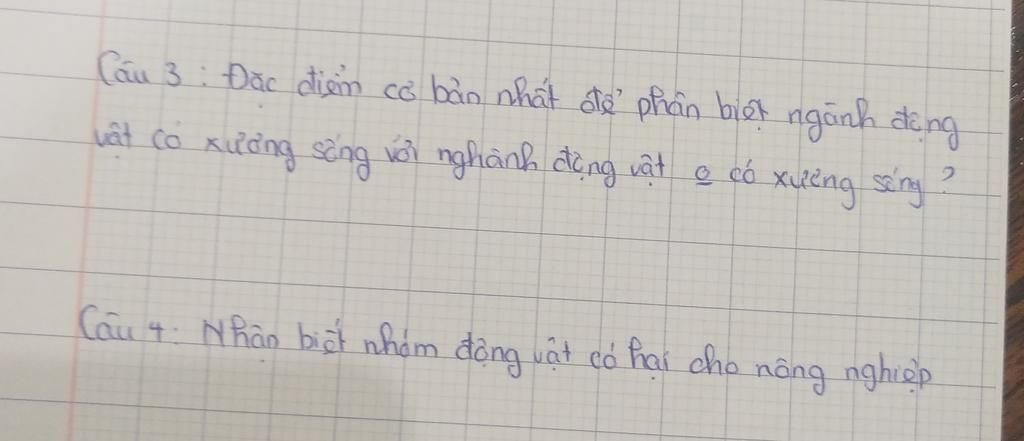 Câu 3 : Đặc điểm cơ bản nhất để phân biệt ngành động
vật có xương sống với nghành động vật o có xương sống ?
Câu 4 : Nhận biết nhóm động vật có hại cho nông nghiệp